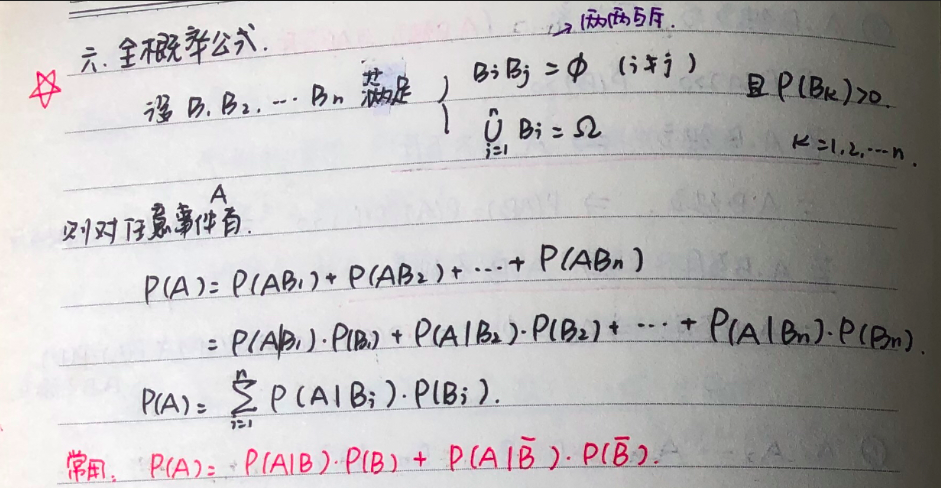 六. 全概率公式.
→ 两两互斥.
设 B₁ B₂, … Bn 若满足 { BiBj = ϕ (i≠j) 且 P(Bk)>0.
n ∪ i=1 Bi = Ω K=1,2,…n.
A
则对任意事件有.
P(A) = P(AB₁) + P(AB₂) + … + P(ABn)
= P(A|B₁)·P(B₁) + P(A|B₂)·P(B₂) + … + P(A|Bn)·P(Bn).
P(A) = n ∑ i=1 P(A|Bi)·P(Bi).
常用. P(A) = P(A|B)·P(B) + P(A|B̄)·P(B̄).